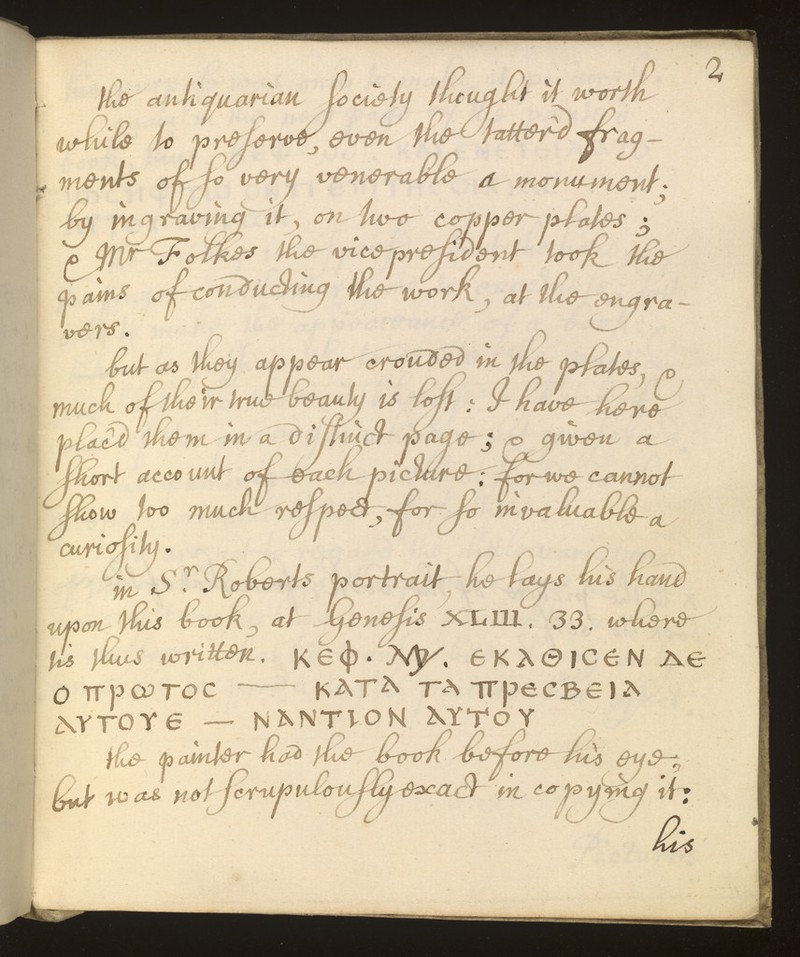 2
the antiquarian society thought it worth
while to preserve, even the tatter'd frag-
ments of so very venerable a monument;
by ingraving it, on two copper plates;
& Mr Folkes the vicepresident took the
pains of conducting the work, at the engra-
vers.
but as they appear crouded in the plates, &
much of their true beauty is lost: I have here
plac'd them in a distinct page; & given a
short account of each picture: for we cannot
show too much respect, for so invaluable a
curiosity.
in Sr. Roberts portrait, he lays his hand
upon this book, at Genesis XLIII. 33. where
tis thus written. ΚΕΦ. ΜΓ. ΕΚΑΘΙCΕΝ ΔΕ
Ο ΠΡΩΤΟC — ΚΑΤΑ ΤΑ ΠΡΕCΒΕΙΑ
ΑΥΤΟΥΕ — ΝΑΝΤΙΟΝ ΑΥΤΟΥ
the painter had the book before his eye,
but was not scrupulously exact in copying it:
his